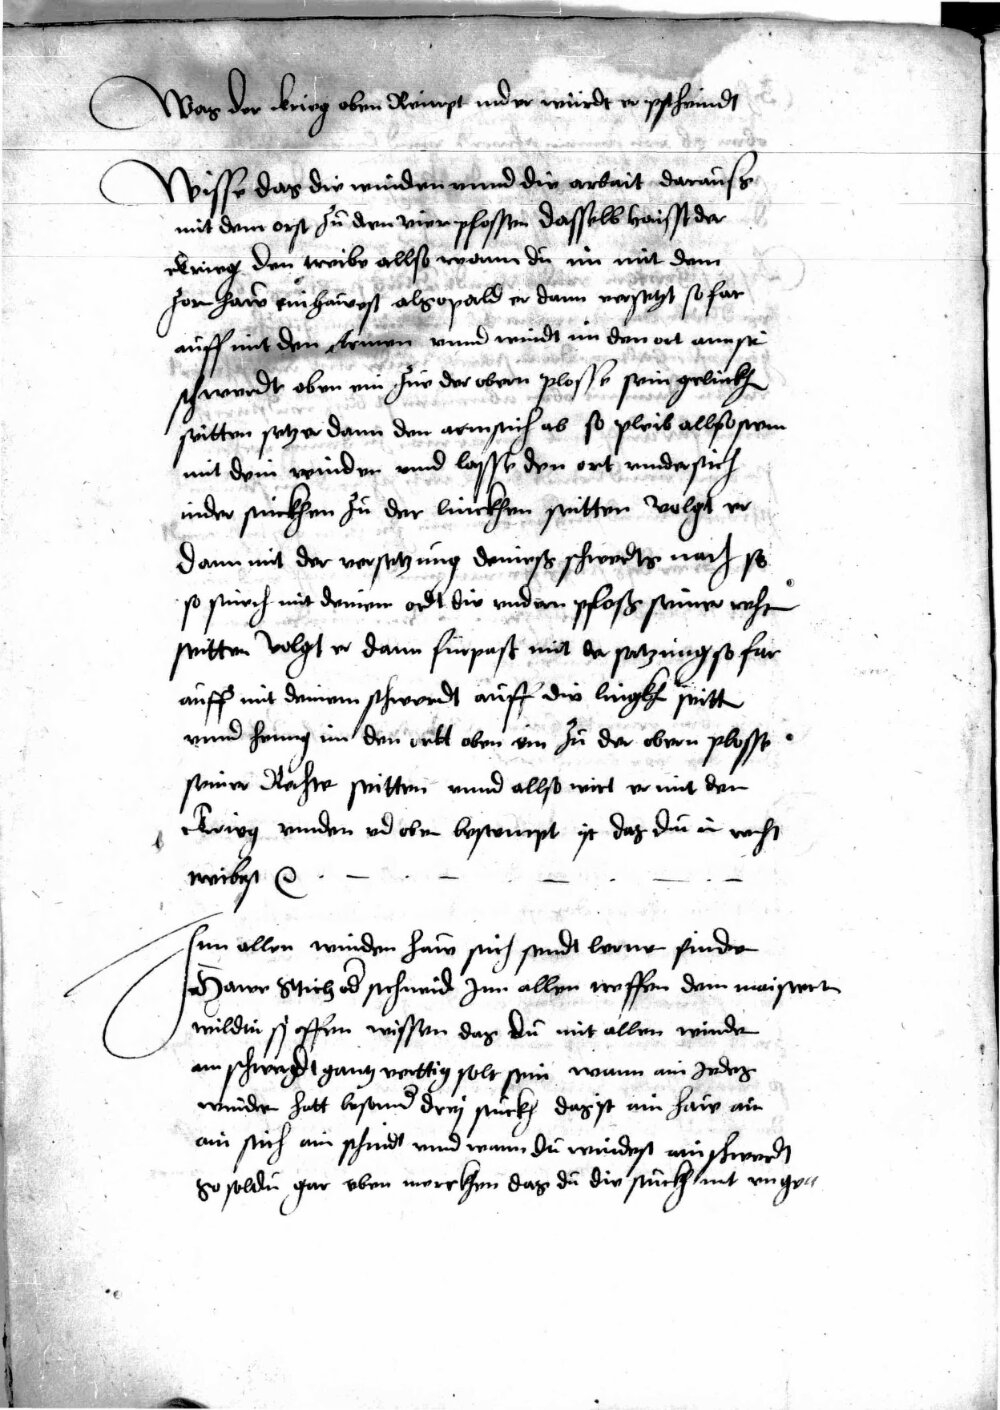 Was der krieg oben Reimpt under würdt er pschemdt
Wisse das die winden unnd die arbait darauss
mit dem orst zü den vier plossen dasselb haisst der
krieg den treibe allso wann dü im mit dem
zorn haw einhawest alsopald er dann versetzt so far
auff mit den Armen unnd windt im den ort am sei
schwerdt oben ein zue der obern plosse sein gelinckh
seitten setzt er dann den armstich ab so pleib allso sten
mit dem winden unnd lasse den ort undersich
inder stuckhen zü der linckhen seitten volgt er
dann mit der versetzung deines schwerdts nach so
so stüech mit deinem ordt die undern ploss seiner recht
seitten volgt er dann fürpast mit der satzung so far
auff mit deinem schwerdt auff die lingkh seitt
unnd heng im den ortt oben ein zü der obern plosse
seiner Rechte seitten unnd allso wirt er mit den
krieg unden ud oben bestempt ist das dü in recht
treibest
Inn allen winden haw stich sendt lerne finde
Hawe Stich od schneid Inn allen treffen dem maistern
wildtu sy effen wissen das dü mit allen winde
am schwerdt gantz vertig solt sein wann ain Jedes
winden hatt besonnd drej stückh das ist ain haw ain
ain stich ain schnidt unnd wann dü windest am schwerdt
So soldu gar eben merckhen das dü die stückh nit unge